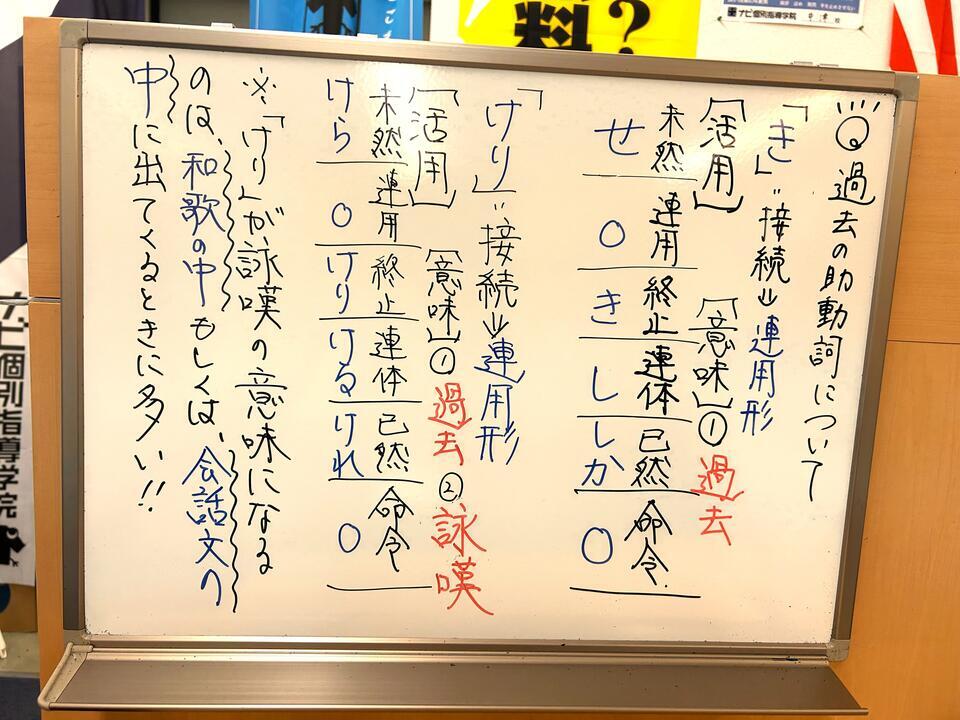 ◎過去の助動詞について
「き」=接続⇒連用形
[活用] [意味]①過去
未然 連用 終止 連体 已然 命令
せ ○ き し しか ○
「けり」=接続⇒連用形
[活用] [意味]①過去②詠嘆
未然 連用 終止 連体 已然 命令
けら ○ けり ける けれ ○
※「けり」が詠嘆の意味になる
のは、和歌の中もしくは、会話文の
中に出てくるときに多い!!
料?
ナビ個別指導学院
ナビ個別指導学院